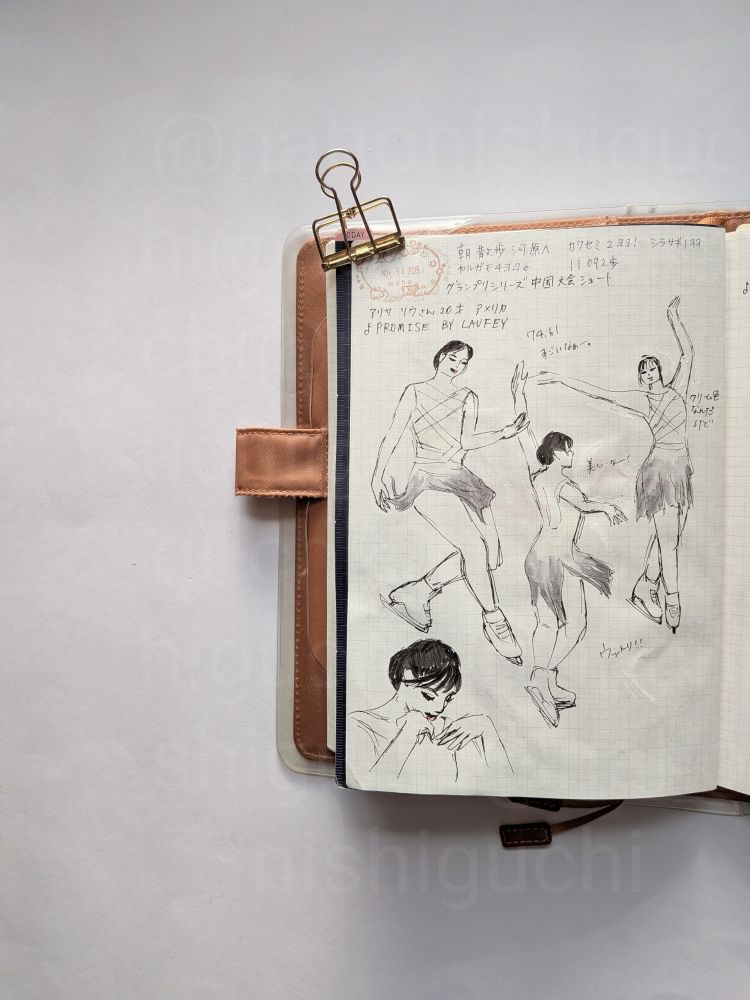 @nahonishiguchi
TODAY
NOV. 14. 2025
朝 散歩 河原へ カワセミ 2ヨヨ! シラサギ1ヨヨ
カルガモ4ヨヨ。 11092歩
グランプリシリーズ 中国大会 ショート
アリサ・リウさん 20才 アメリカ
♪PROMISE BY LAUFEY
74.61
すごいなぁ〜。
クリーム色
なんだ
けど
美しいな〜
ウットリ!!
nishiguchi